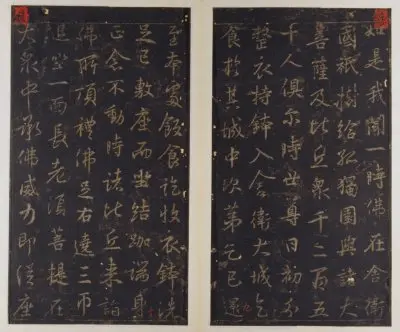 如是我聞一時佛在舍衛
國祇樹給孤獨園與諸大
菩薩及比丘衆千二百五
十人俱尒時世尊日初分
整衣持鉢入舍衛大城乞
食於其城中次第乞已還
至本處飯食訖收衣鉢洗
足已敷座而坐結跏端身
正念不動時諸比丘來詣
佛所頂禮佛足右遶三帀
退坐一面長老須菩提在
大衆中承佛威力即從座